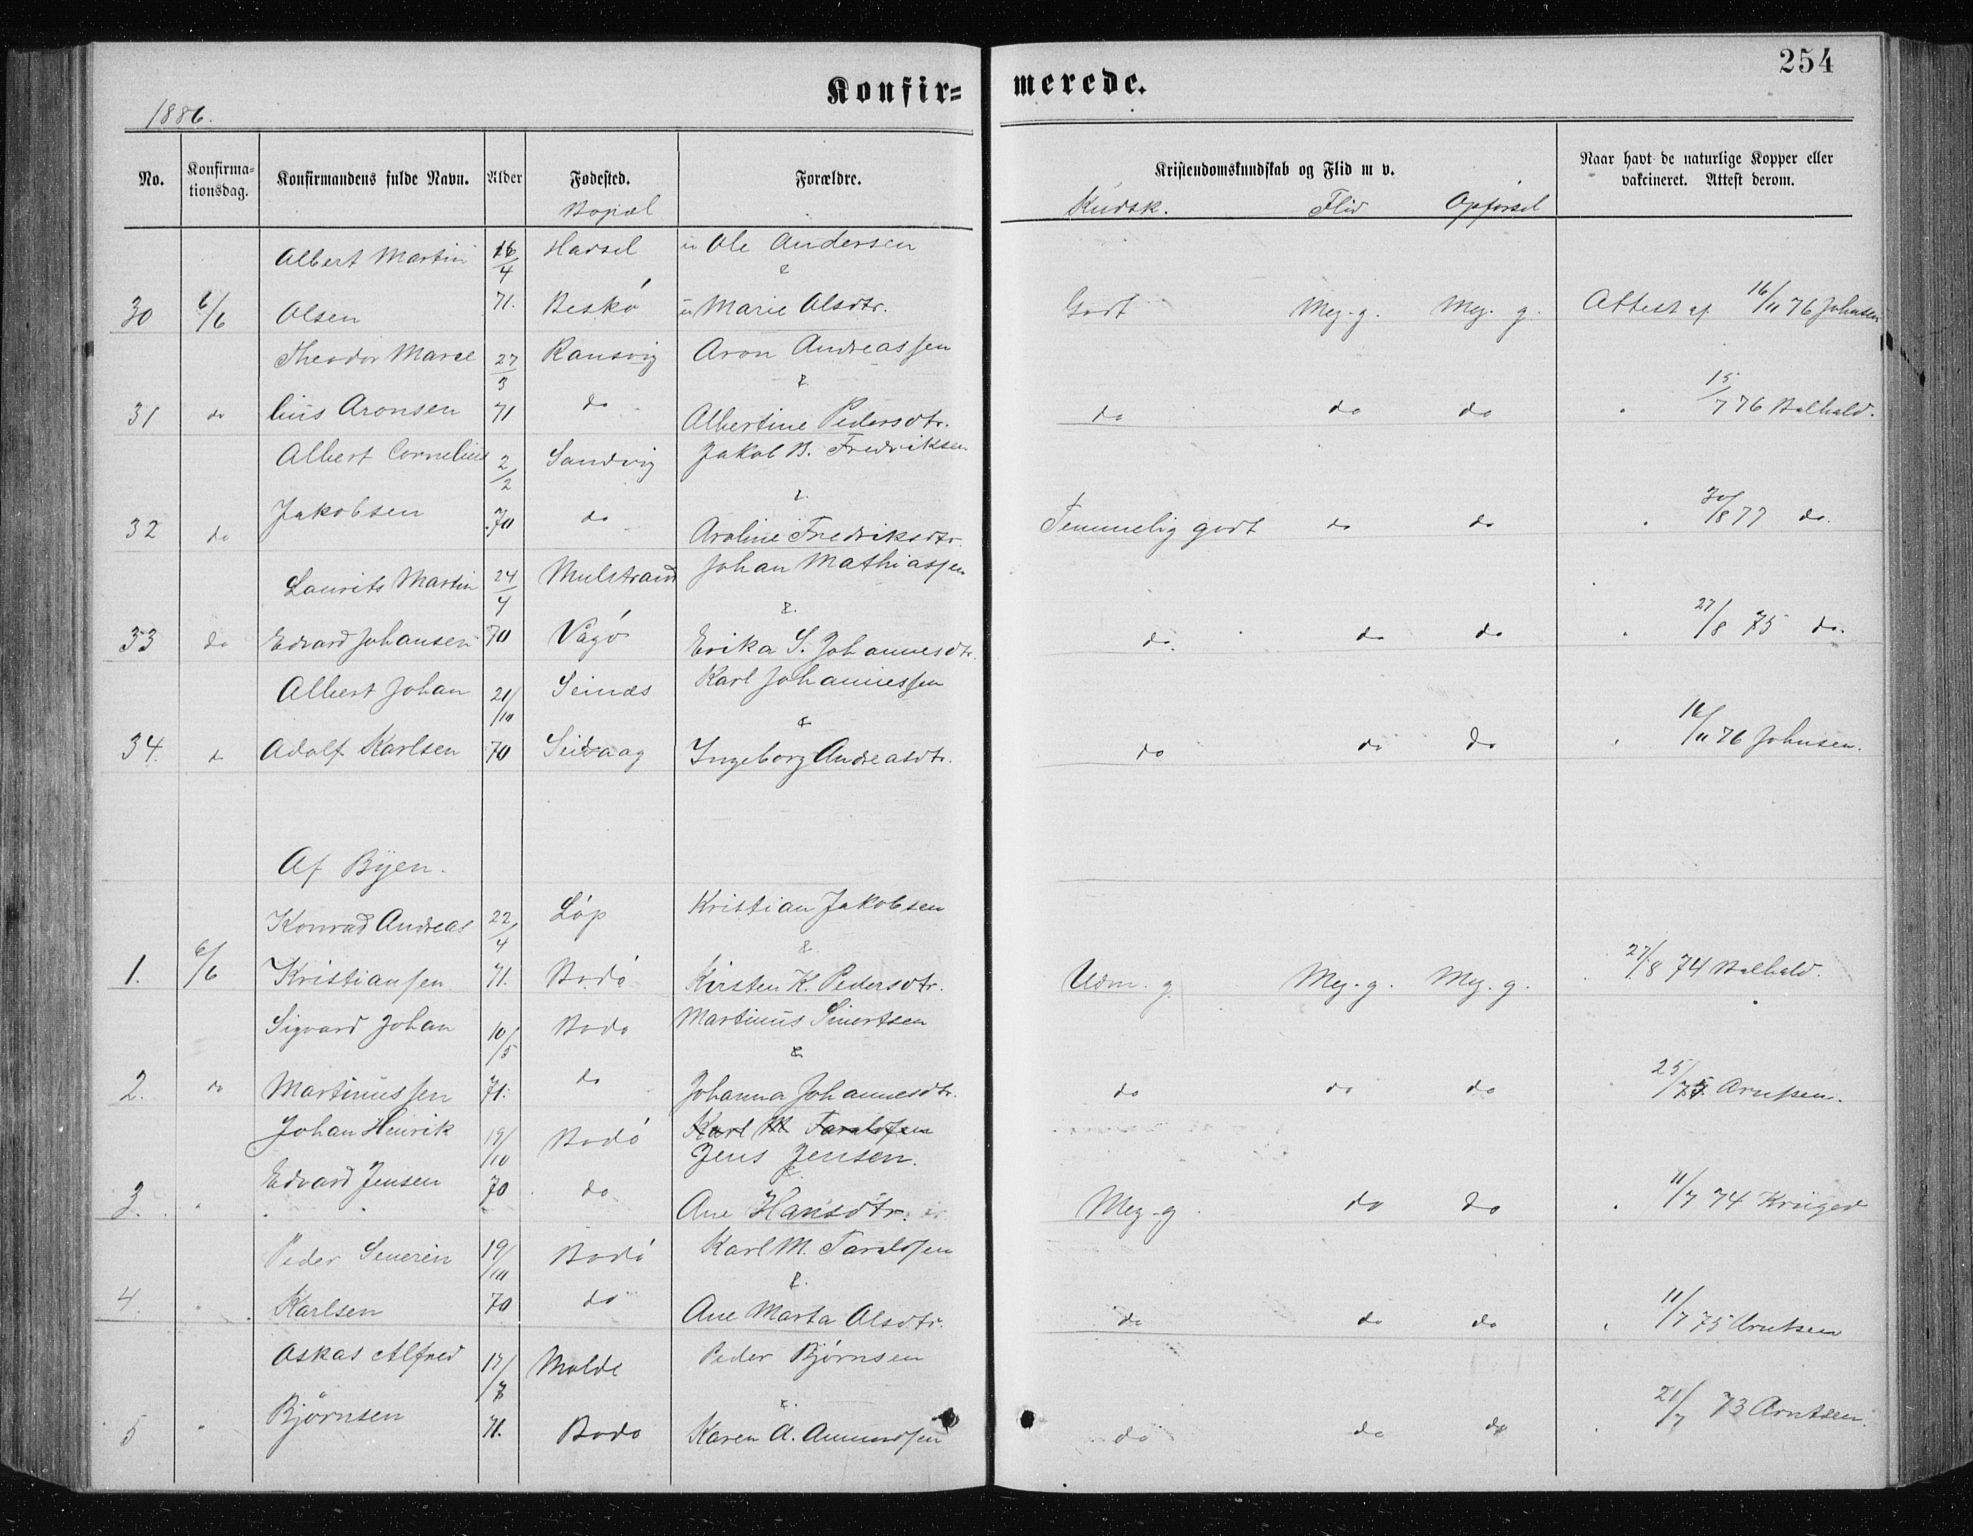 254
Konfir= merede.
1886.
No. Konfirma-tionsdag. Konfirmandens fulde Navn. Alder Fødested. Forældre. Kristendomskundskab og Flid m v. Naar havt de naturlige Kopper eller vakcineret. Attest derom.
Bopæl Kudsk. Flid Opførsel
Albert Martin 16/4 Hadsel u Ole Andersen
&
30 6/6 Olsen 71. Beskø u Marie Olsdtr. Godt Meg. g. Meg. g. Attest af 16/11 76 Johnsen
Theodor Marce 27/3 Ransvig Aron Andreassen
&
31 do lius Aronsen 71 do Albertine Pedersdtr. do do do 15/7 76
Albert Cornelius 2/2 Sandvig Jakob B. Fredriksen
&
32 do Jakobsen 70 do Aroline Fredriksdtr. Temmelig godt do do 30/8 77 do.
Laurits Martin 24/4 Mulstrand Johan Mathiassen
&
33 do Edvard Johansen 70 Vågø Erika S. Johannesdtr. do. do do 27/8 75 do.
Albert Johan 21/10 Seines Karl Johannessen
&
34. do Adolf Karlsen 70 Seivaag Ingeborg Andreasdtr. do do do 16/11 76 Johnsen.
Af Byen.
Konrad Andreas 22/4 Løp Kristian Jakobsen
&
1. 6/6 Kristiansen 71. Bodø Kirsten K. Pedersdtr. Udm. g. Meg. g. Meg. g. 27/8 74
Sigvard Johan 10/5 Bodø Martinus Sivertsen
&
2. do Martinussen 71. do Johanna Johannesdtr. do do do 25/ Arntsen.
Johan Henrik 19/10 Bodø Karl M Taraldsen
Jens Jensen.
&
3. Edvard Jensen 70 do Ane Hansdtr. Meg. g do do 11/7 74 Krüger
Peder Severin 19/10 Bodø Karl M. Taraldsen
&
4. Karlsen 70 do Ane Marta Olsdtr. do do do 11/7 75 Arntsen
Askas Alfred 17/7 Molde Peder Bjørnsen
&
5 Bjørnsen 71. Bodø Karen A. Amundsen do do do 21/7 73 Arntsen.